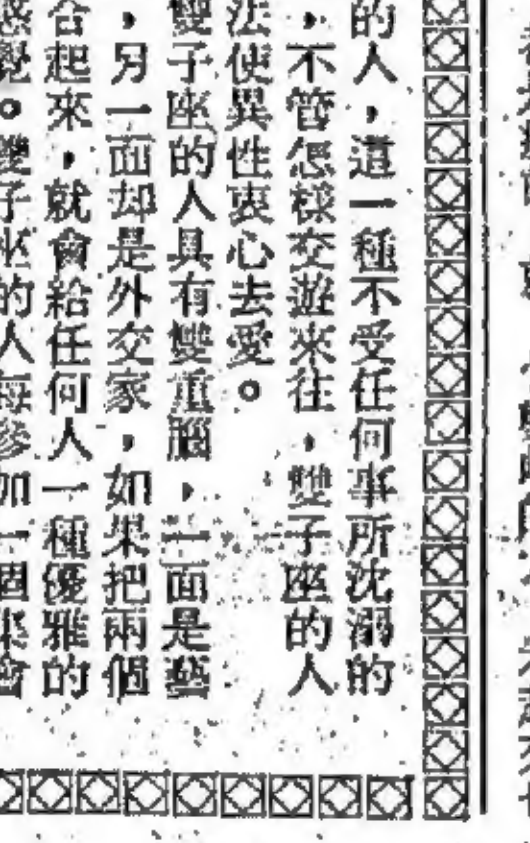 的人，這一種不受任何事所沈溺的
，不管怎樣交遊來往，雙子座的人
法使異性衷心去愛。
雙子座的人具有雙重腦，一面是藝
，另一面却是外交家，如果把兩個
合起來，就會給任何人一種優雅的
感覺。雙子座的人每參加一個集會